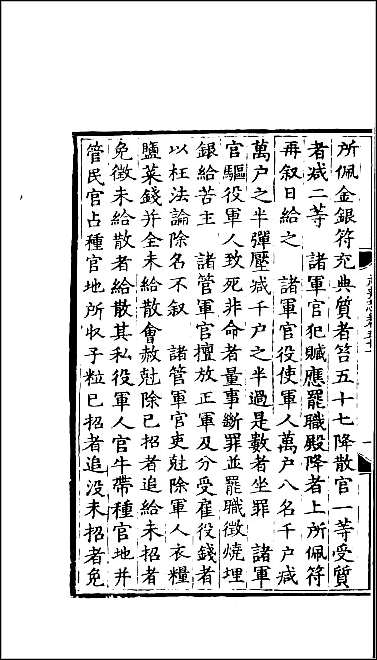 所佩金銀符充典質者笞五十七降散官一等受質
者减二等　諸軍官犯贓應罷職殿降者上所佩符
再叙日給之　諸軍官役使軍人萬户八名千户减
萬户之半彈壓减千户之半過是數者坐罪　諸軍
官驅役軍人致死非命者量事斷罪並罷職徴燒埋
銀給苦主　諸管軍官擅放正軍及分受雇役錢者
以枉法論除名不叙　諸管軍官吏尅除軍人衣糧
鹽菜錢并全未給散會赦尅除已招者追給未招者
免徴未給散者給散其私役軍人官牛帶種官地并
管民官占種官地所收子粒已招者追没未招者免